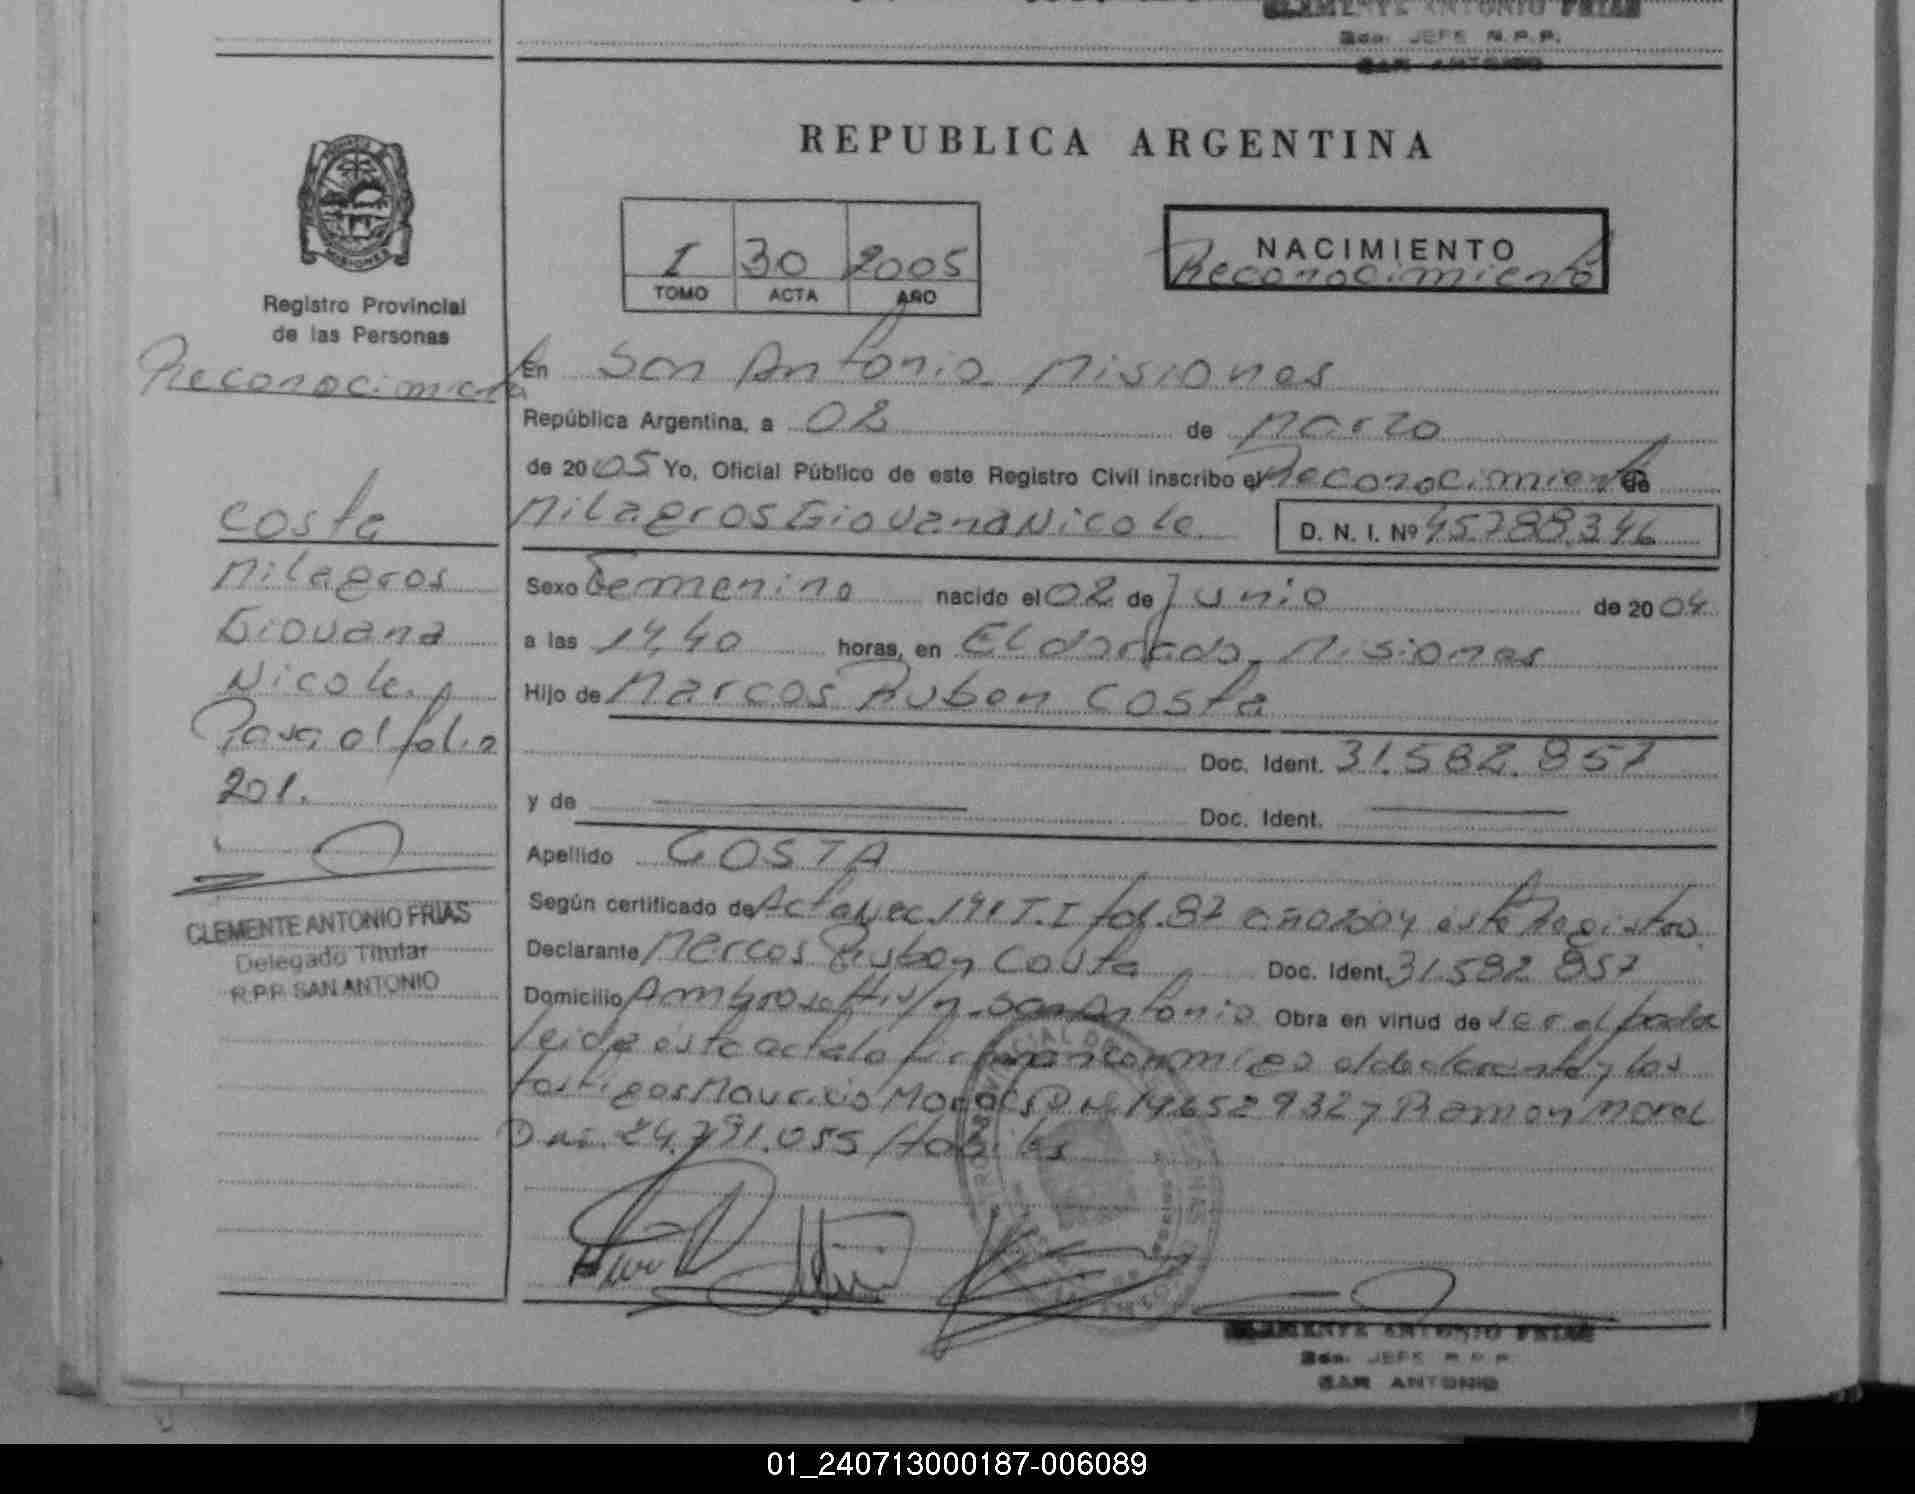 CLEMENTE ANTONIO FRIAS
2do. JEFE R.P.P.
SAN ANTONIO
REPUBLICA ARGENTINA
MISIONES
Registro Provincial
de las Personas
I 30 2005
TOMO ACTA AÑO
NACIMIENTO
Reconocimiento
Reconocimiento
En San Antonio Misiones
República Argentina, a 02 de Marzo
de 2005 Yo, Oficial Público de este Registro Civil inscribo el Reconocimiento de
Milagros Giovana Nicole D. N. I. Nº 45.788.346
Sexo Femenino nacido el 02 de Junio de 2004
a las 14,40 horas, en Eldorado, Misiones
Hijo de Marcos Ruben Costa
Doc. Ident. 31.582.857
y de Doc. Ident.
Apellido COSTA
Según certificado de Acta Nac. 191 T. I fol. 87 año 2004 este Registro
Declarante Marcos Ruben Costa Doc. Ident. 31.582.857
Domicilio Ambrosetti s/n. San Antonio Obra en virtud de ser el padre
leida esta acta la firman conmigo el declarante y los
testigos Mauricio D.N.I. 14652932 y Ramon Morel
D.N.I. 24.791.055 Habiles
Costa
Milagros
Giovana
Nicole.
Pasa al folio
201.
CLEMENTE ANTONIO FRIAS
Delegado Titular
R.P.P. SAN ANTONIO
CLEMENTE ANTONIO FRIAS
2do. JEFE R.P.P.
SAN ANTONIO
01_240713000187-006089